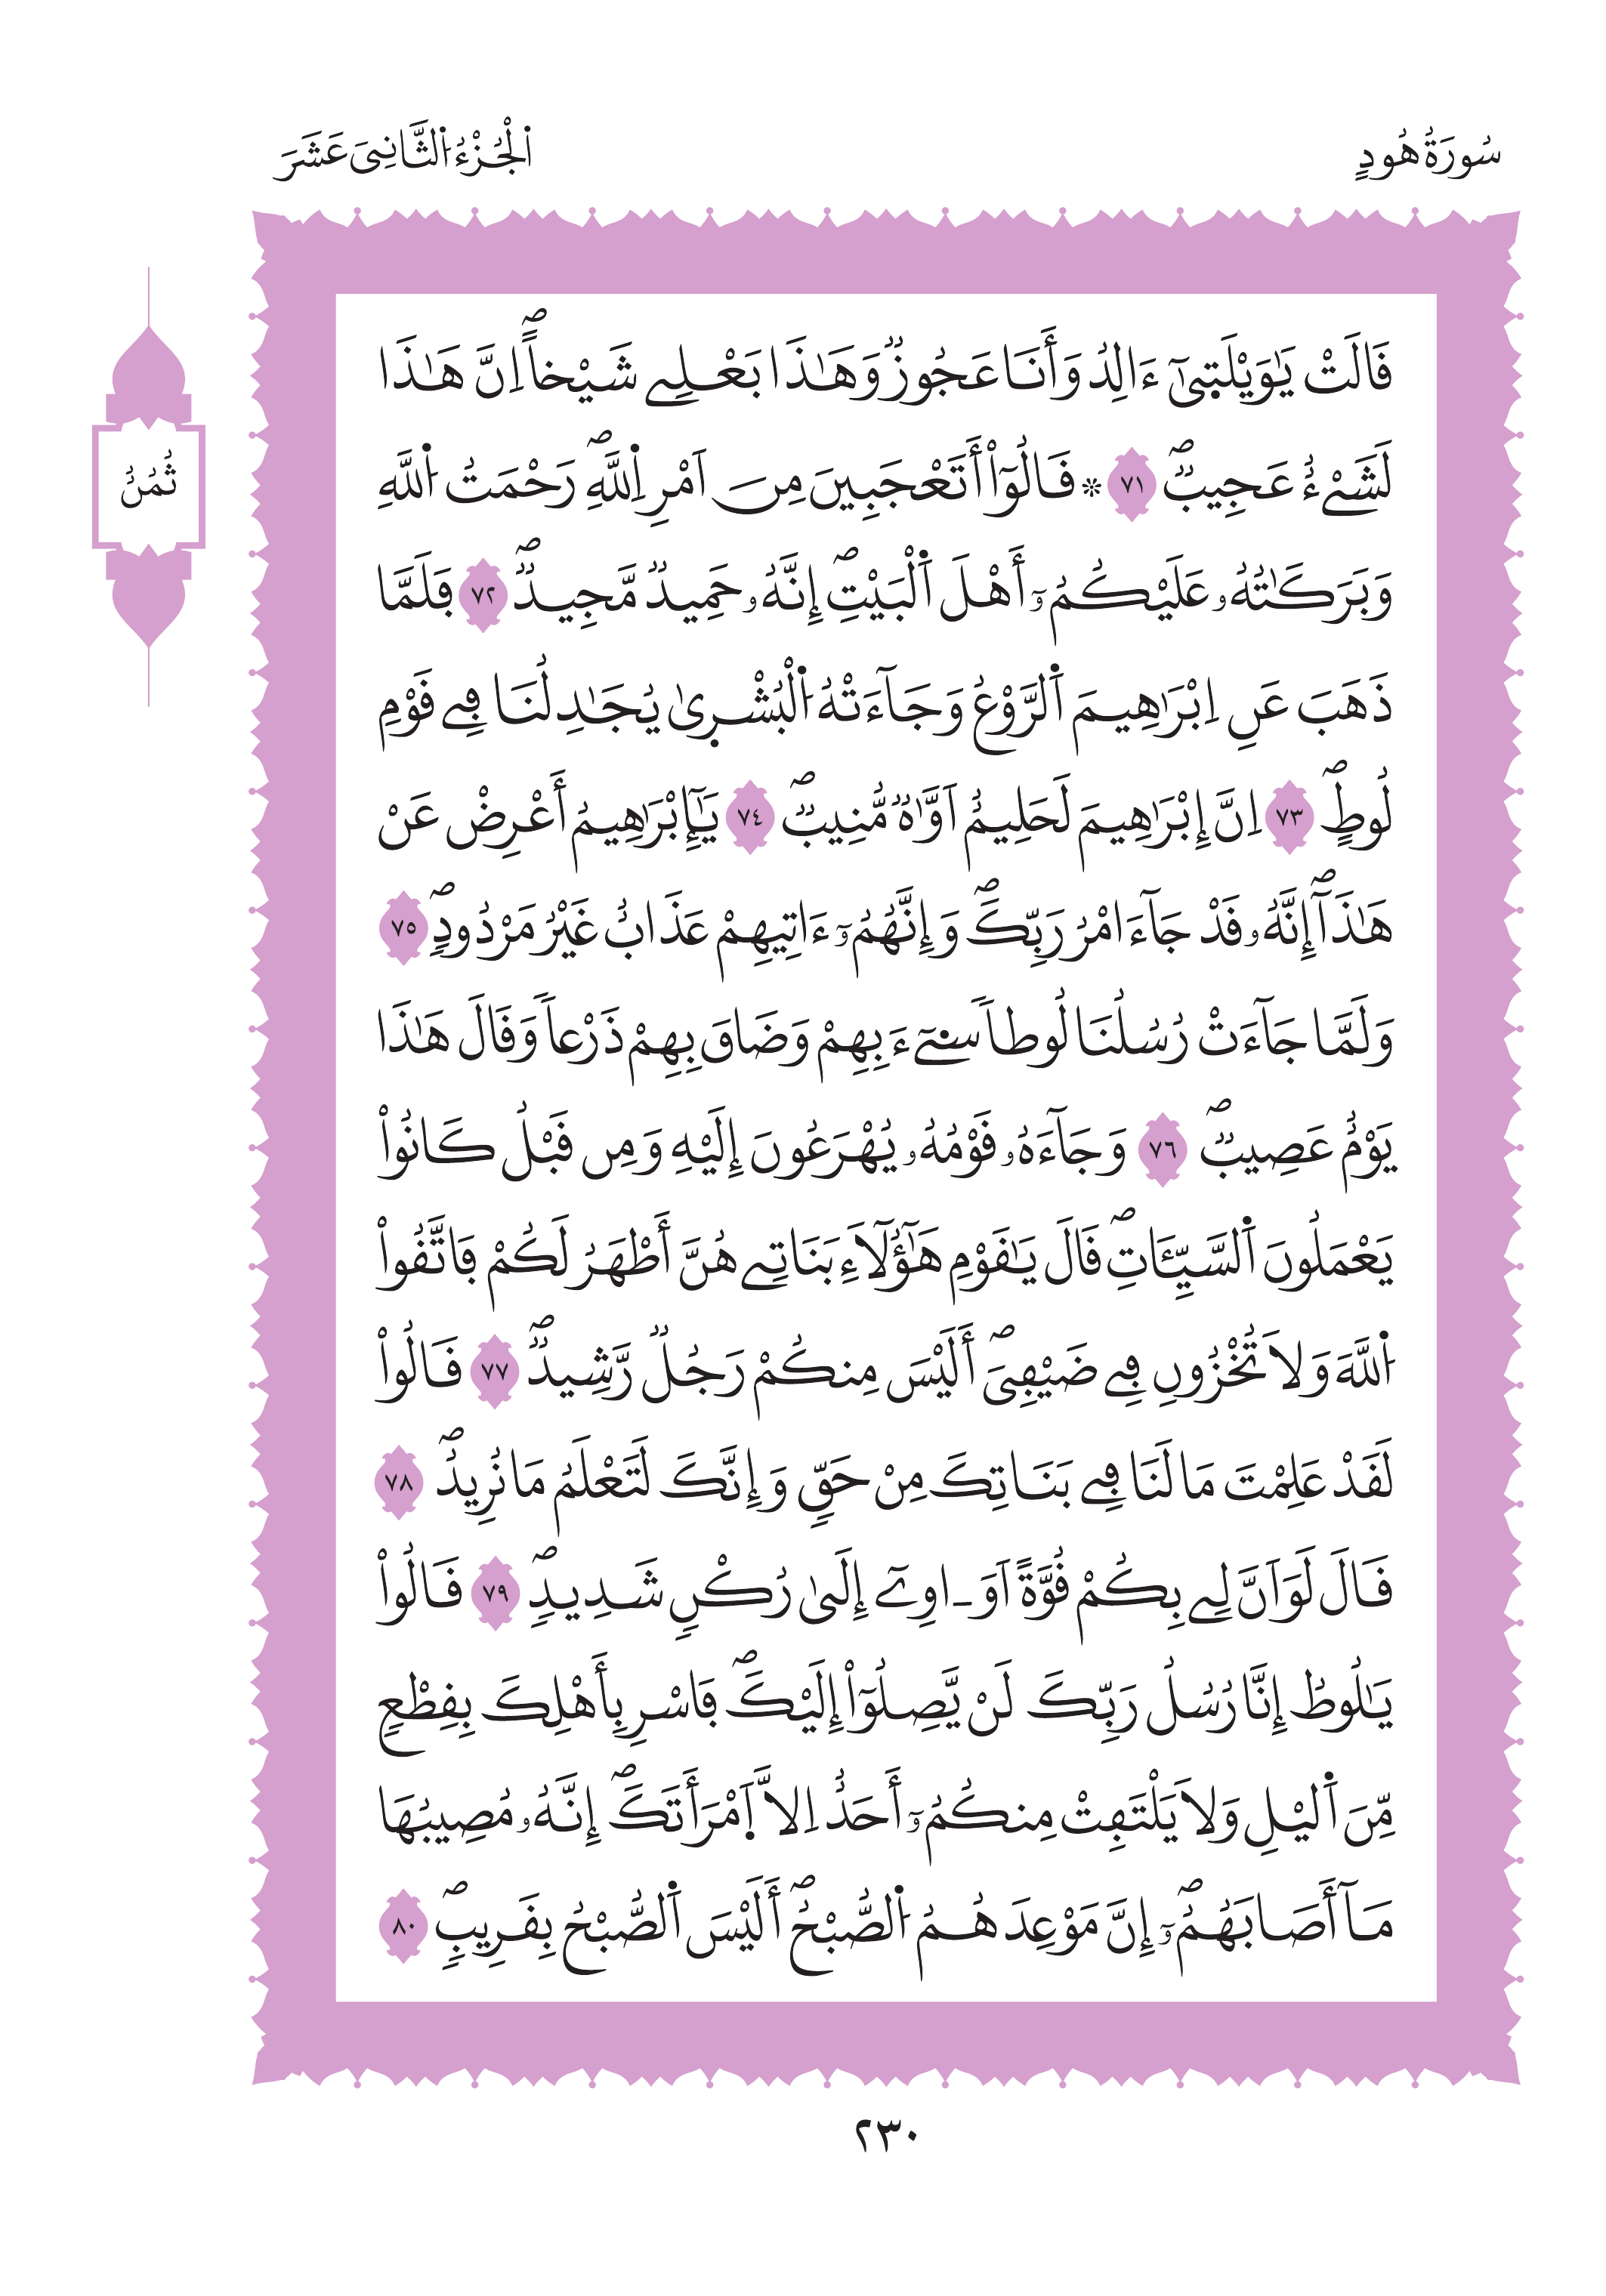 سُورَةُ هُودٍ
اَ۬لْجُزْءُ اُ۬لثَّانِيَ عَشَرَ
ثُمُنُ
قَالَتْ يَٰوَيْلَت۪يٰٓ ءَالِدُ وَأَنَا عَجُوزٞ وَهَٰذَا بَعْلِے شَيْخاًۖ اِنَّ هَٰذَا
لَشَےْءٌ عَجِيبٞۖ ٧١ * قَالُوٓاْ أَتَعْجَبِينَ مِنَ اَمْرِ اِ۬للَّهِۖ رَحْمَتُ اُ۬للَّهِ
وَبَرَكَٰتُهُۥ عَلَيْكُمُۥٓ أَهْلَ اَ۬لْبَيْتِۖ إِنَّهُۥ حَمِيدٞ مَّجِيدٞۖ ٧٢ فَلَمَّا
ذَهَبَ عَنِ اِبْرَٰهِيمَ اَ۬لرَّوْعُ وَجَآءَتْهُ اُ۬لْبُشْر۪يٰ يُجَٰدِلُنَا فِے قَوْمِ
لُوطٍۖ ٧٣ اِنَّ إِبْرَٰهِيمَ لَحَلِيمٌ اَوَّٰهٞ مُّنِيبٞۖ ٧٤ يَٰٓإِبْرَٰهِيمُ أَعْرِضْ عَنْ
هَٰذَآۖ إِنَّهُۥ قَدْ جَآءَ امْرُ رَبِّكَۖ وَإِنَّهُمُۥٓ ءَاتِيهِمْ عَذَابٌ غَيْرُ مَرْدُودٍۖ ٧٥
وَلَمَّا جَآءَتْ رُسُلُنَا لُوطاٗ سِےٓءَ بِهِمْ وَضَاقَ بِهِمْ ذَرْعاٗ وَقَالَ هَٰذَا
يَوْمٌ عَصِيبٞۖ ٧٦ وَجَآءَهُۥ قَوْمُهُۥ يُهْرَعُونَ إِلَيْهِ وَمِن قَبْلُ كَانُواْ
يَعْمَلُونَ اَ۬لسَّيِّـَٔاتِۖ قَالَ يَٰقَوْمِ هَٰٓؤُلَآءِ بَنَاتِے هُنَّ أَطْهَرُ لَكُمْ فَاتَّقُواْ
اُ۬للَّهَ وَلَا تُخْزُونِ فِے ضَيْفِيَۖ أَلَيْسَ مِنكُمْ رَجُلٞ رَّشِيدٞۖ ٧٧ قَالُواْ
لَقَدْ عَلِمْتَ مَا لَنَا فِے بَنَاتِكَ مِنْ حَقّٖ وَإِنَّكَ لَتَعْلَمُ مَا نُرِيدُۖ ٧٨
قَالَ لَوَ اَنَّ لِے بِكُمْ قُوَّةً اَوَ ـ اوِےٓ إِلَىٰ رُكْنٖ شَدِيدٖۖ ٧٩ قَالُواْ
يَٰلُوطُ إِنَّا رُسُلُ رَبِّكَ لَنْ يَّصِلُوٓاْ إِلَيْكَۖ فَاسْرِ بِأَهْلِكَ بِقِطْعٖ
مِّنَ اَ۬ليْلِ وَلَا يَلْتَفِتْ مِنكُمُۥٓ أَحَدٌ اِلَّا اَ۪مْرَأَتَكَۖ إِنَّهُۥ مُصِيبُهَا
مَآ أَصَابَهُمُۥٓۖ إِنَّ مَوْعِدَهُمُ اُ۬لصُّبْحُۖ أَلَيْسَ اَ۬لصُّبْحُ بِقَرِيبٖۖ ٨٠
٢٣٠